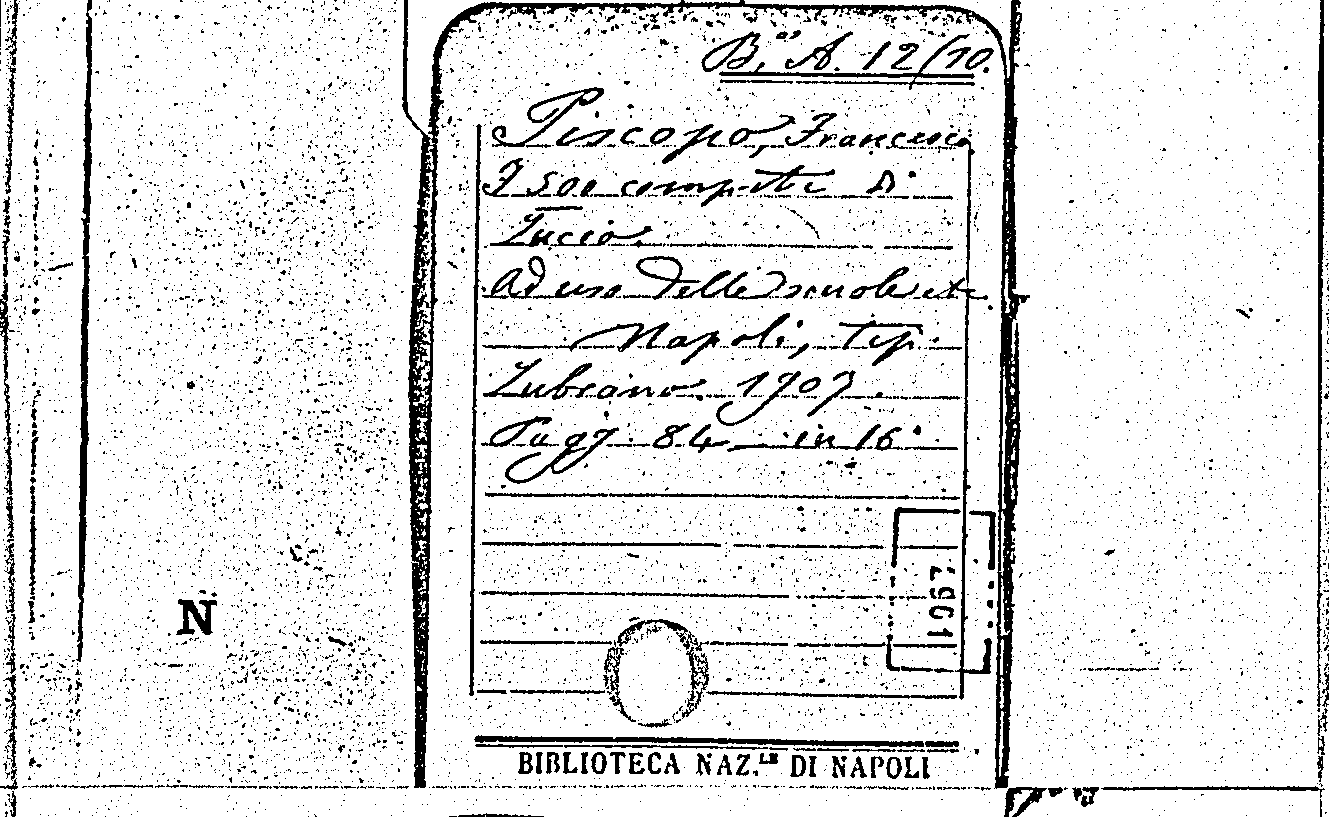 B.ª A. 12/70.
Piscopo, Francesco
I 500 compiti di
Lucio.
Ad uso delle scuole etc.
Napoli, tip.
Lubrano. 1907.
Pagg. 84 in 16°
1967
N
BIBLIOTECA NAZ.LE DI NAPOLI